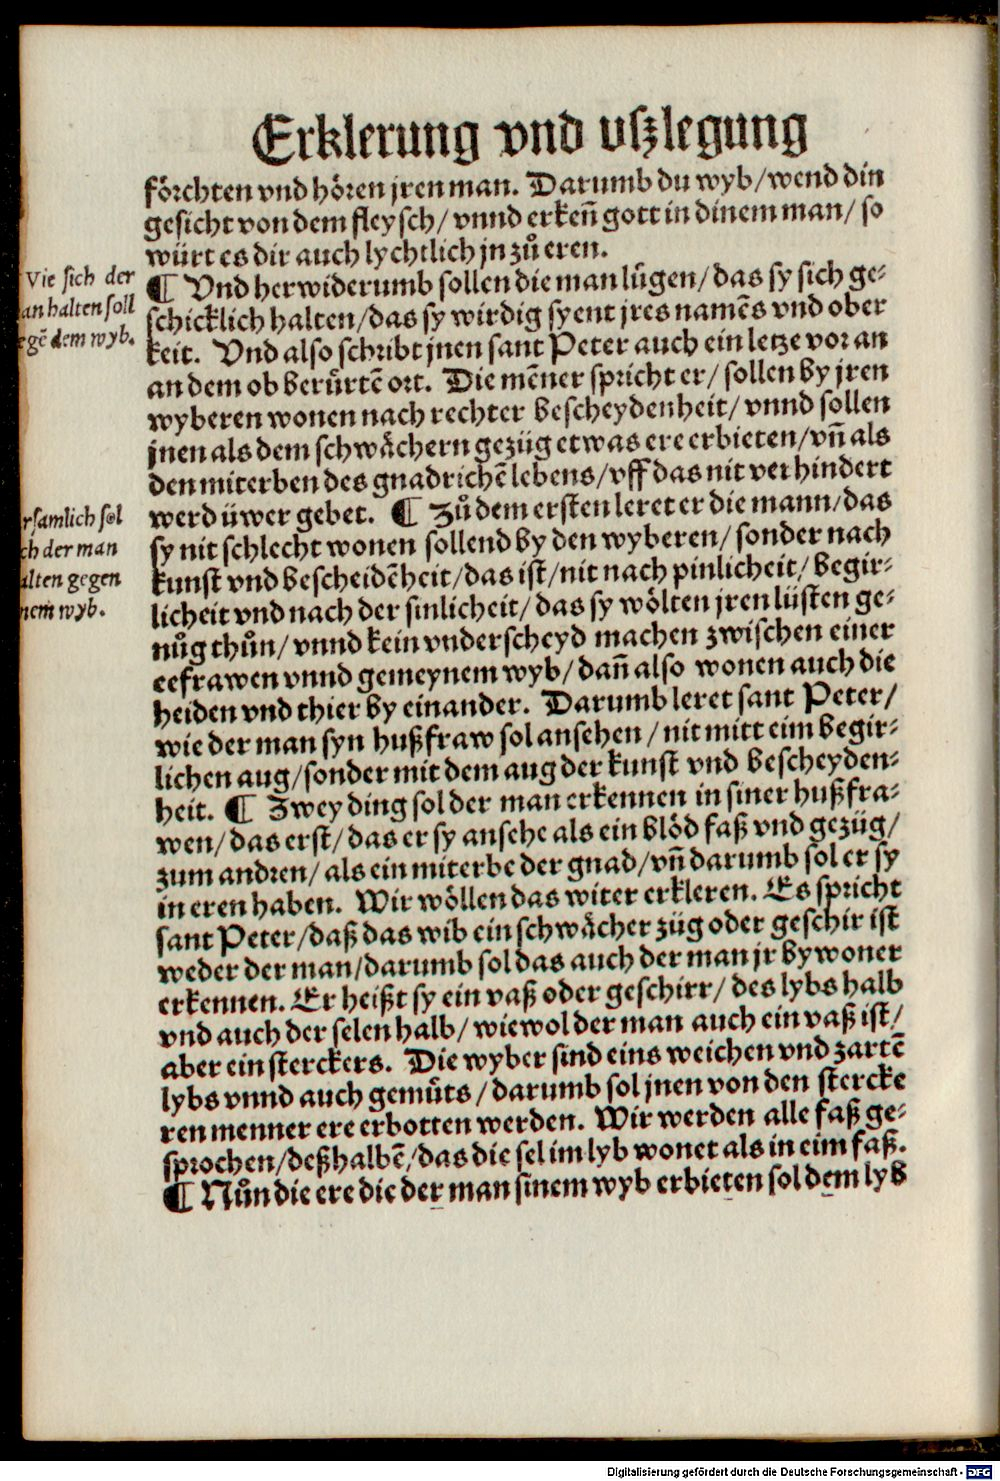 Erklerung vnd vſzlegung
fôꝛchten vnd hôꝛen jren man. Darumb du wyb/wend din
geſicht von dem fleyſch/ vnnd erkeñ gott in dinem man/ ſo
würt es dir auch lychtlich jn zů eren.
¶ Vnd herwiderumb ſollen die man lůgen/das ſy ſich ge⸗
ſchicklich halten/das ſy wirdig ſyent jres namēs vnd ober
keit. Vnd alſo ſchribt jnen ſant Peter auch ein letze voꝛ an
an dem ob berürtē oꝛt. Die mēner ſpricht er/ ſollen by jren
wyberen wonen nach rechter beſcheydenheit/ vnnd ſollen
jnen als dem ſchwächern gezüg etwas ere erbieten/vñ als
den miterben des gnadrichē lebens/vff das nit verhindert
werd üwer gebet. ¶ Zů dem erſten leret er die mann/das
ſy nit ſchlecht wonen ſollend by den wyberen/ ſonder nach
kunſt vnd beſcheidēheit/das iſt/nit nach pinlicheit/ begir⸗
licheit vnd nach der ſinlicheit/das ſy wôlten jren lüſten ge⸗
nůg thůn/ vnnd kein vnderſcheyd machen zwiſchen einer
eefrawen vnnd gemeynem wyb/dañ alſo wonen auch die
heiden vnd thier by einander. Darumb leret ſant Peter/
wie der man ſyn hußfraw ſol anſehen /nit mitt eim begir⸗
lichen aug/ſonder mit dem aug der kunſt vnd beſcheyden⸗
heit. ¶ Zwey ding ſol der man erkennen in ſiner hußfra⸗
wen/das erſt/das er ſy anſehe als ein blôd faß vnd gezüg/
zum andꝛen/als ein miterbe der gnad/vñ darumb ſol er ſy
in eren haben. Wir wôllen das witer erkleren. Es ſpricht
ſant Peter/daß das wib ein ſchwächer züg oder geſchir iſt
weder der man/darumb ſol das auch der man jr bywoner
erkennen. Er heißt ſy ein vaß oder geſchirr/ des lybs halb
vnd auch der ſelen halb/ wiewol der man auch ein vaß iſt/
aber ein ſterckers. Die wyber ſind eins weichen vnd zartē
lybs vnnd auch gemüts /darumb ſol jnen von den ſtercke
ren menner ere erbotten werden. Wir werden alle faß ge⸗
ſpꝛochen/deßhalbē/das die ſel im lyb wonet als in eim faß.
¶ Nůn die ere die der man ſinem wyb erbieten ſol dem lyb
Vie ſich der
an halten ſoll
egē dem wyb.
rſamlich ſol
ch der man
alten gegen
nem wyb.
Digitalisierung gefördert durch die Deutsche Forschungsgemeinschaft - DFG